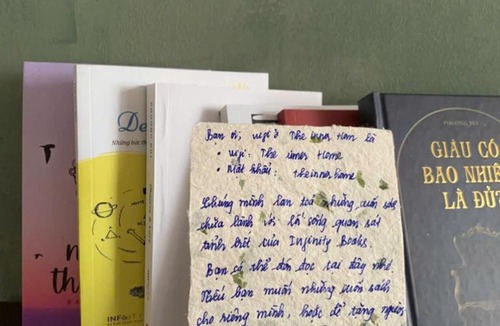 De
Những bức th
n
th
INF
Bạn ơi, wifi ở The inner Hom là
• wifi: The inner Home
• Mật khẩu: theinnerhome
Chúng mình lan toả những cuốn sách
chữa lành với lối sống quan sát
tỉnh biết của Infinity Books.
Bạn có thể đón đọc tại đây nhé.
Nếu bạn muốn những cuốn sách
cho riêng mình, hoặc để tặng người
GIÀU CÓ
BAO NHIÊ
LÀ ĐỦ